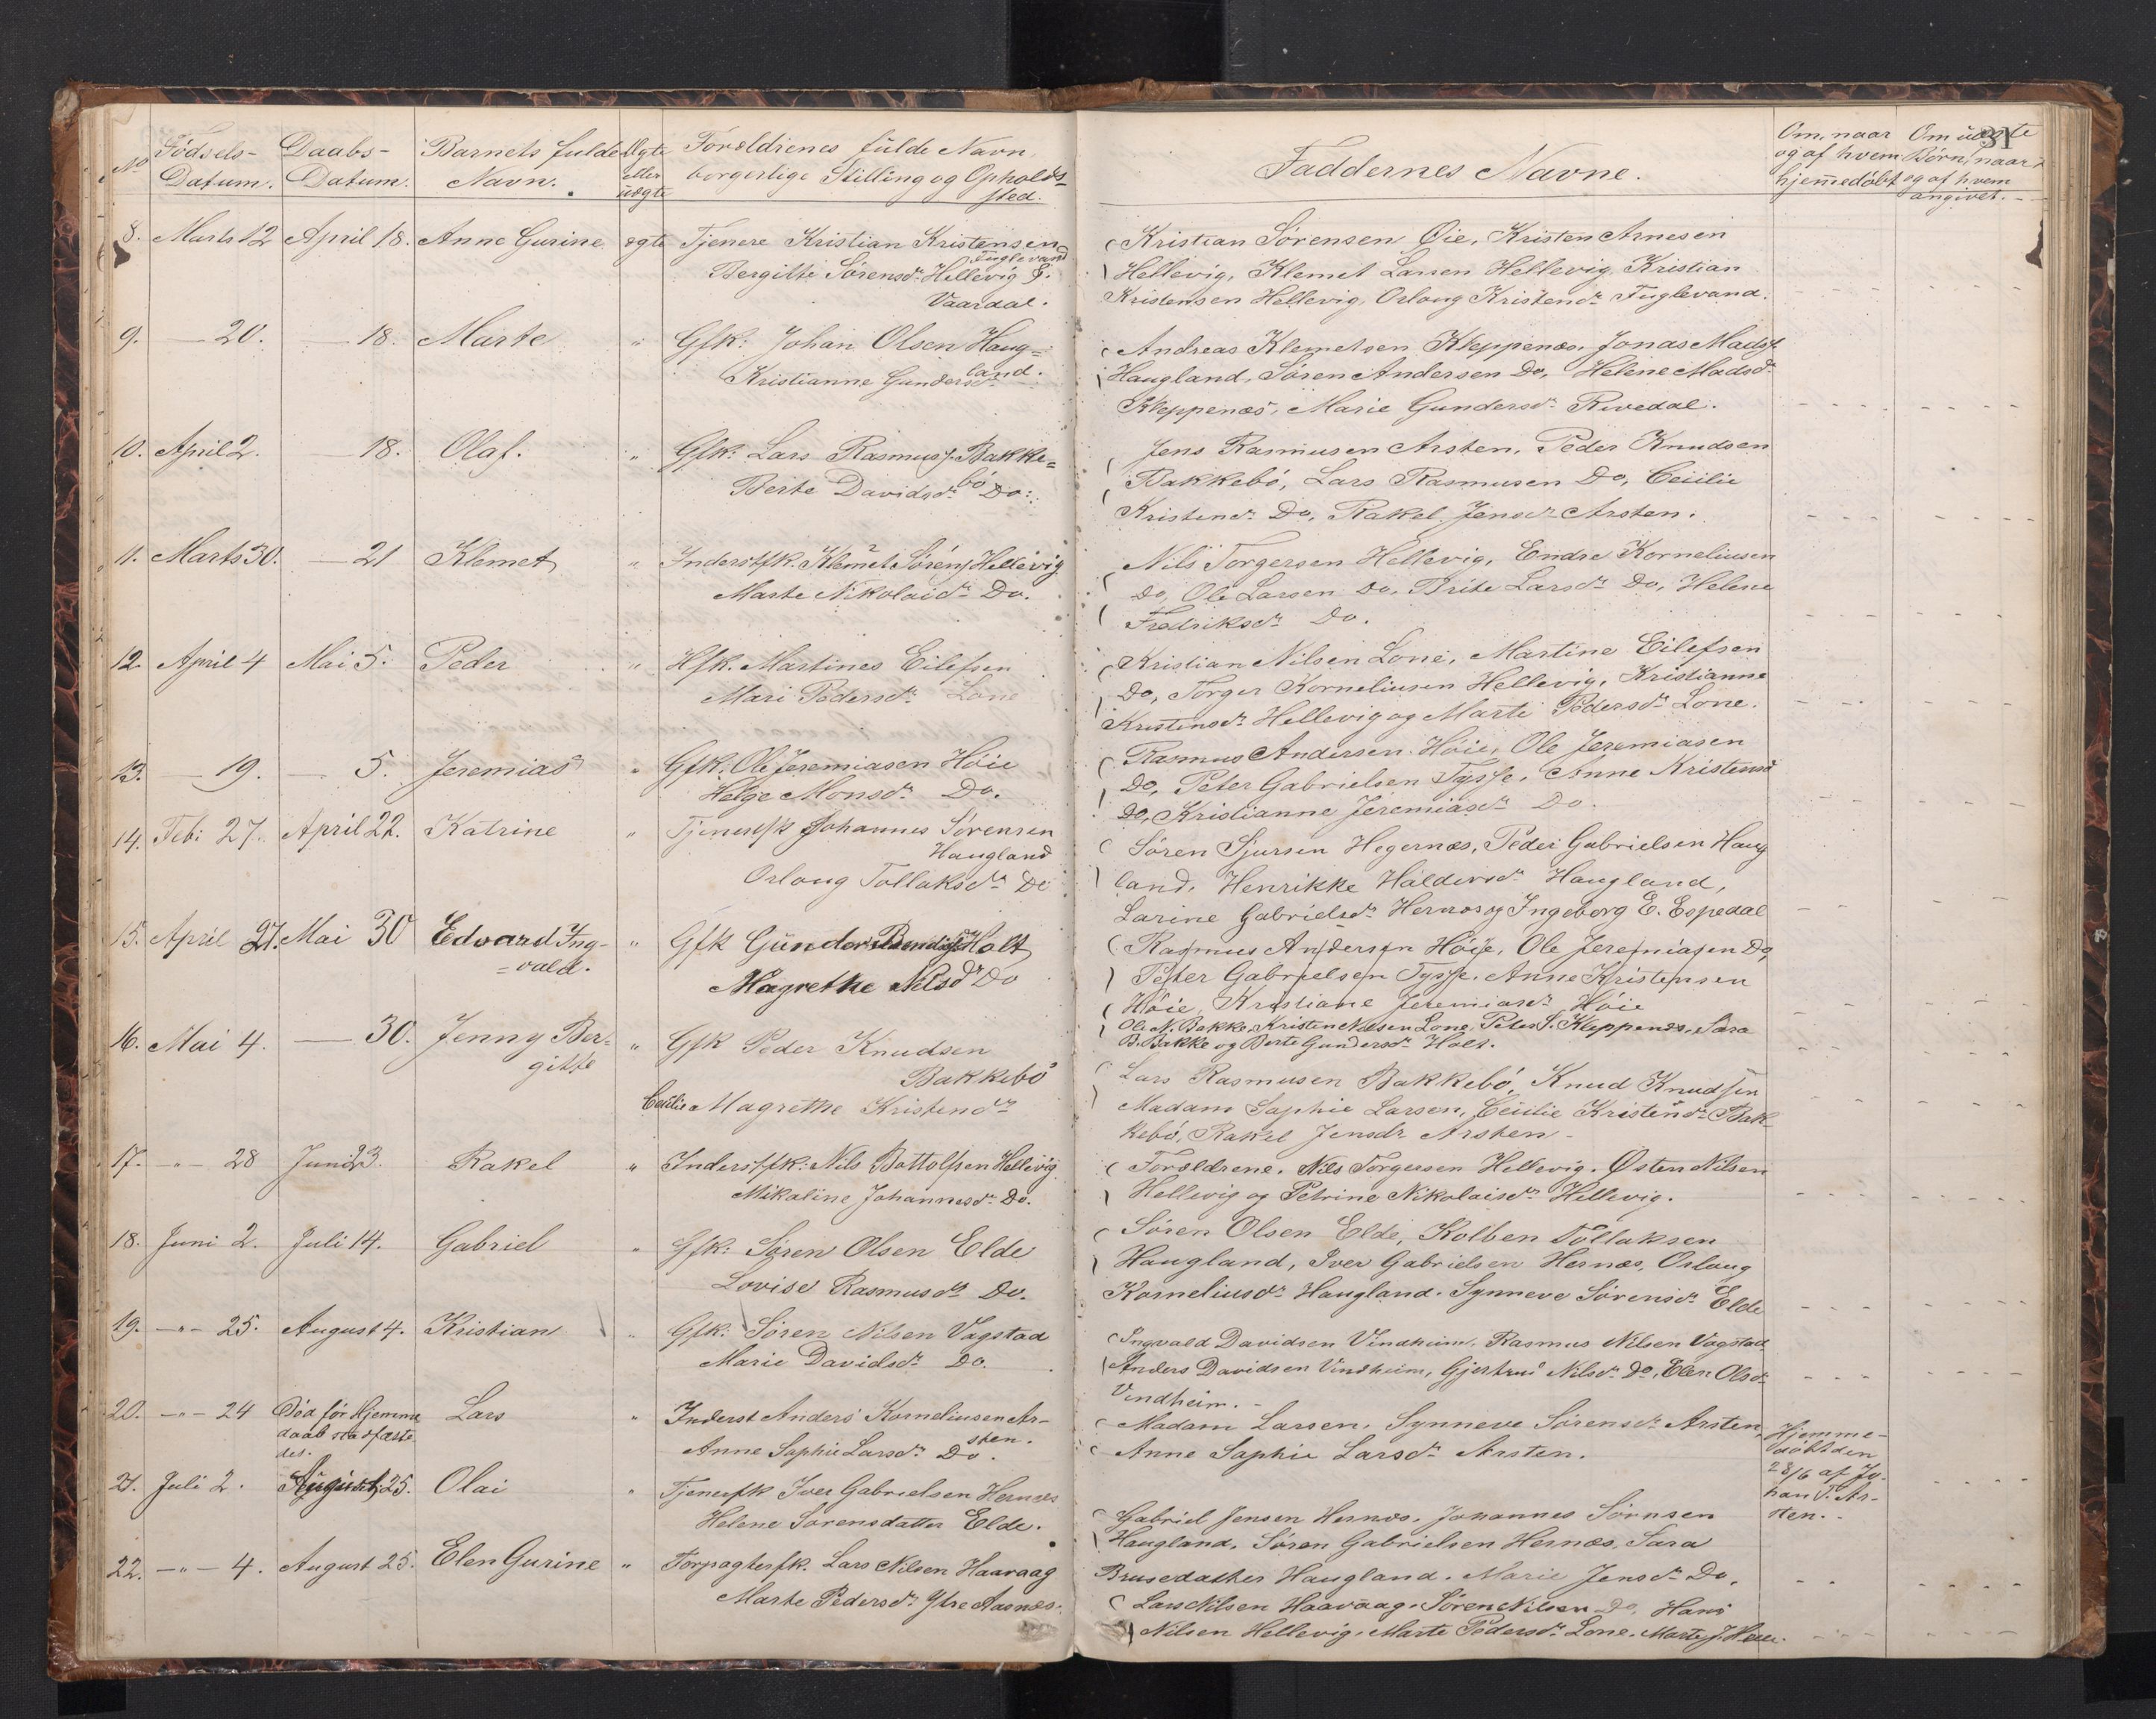 No
Födsels-
Datum.
Daabs-
Datum.
Barnets fulde
Navn.
Ægte
eller
uægte
Forældrenes fulde Navn
borgerlige Stilling og Opholds-
sted.
Faddernes Navne.
Om, naar
og af hvem
hjemedöbt
Om uægte
Börn, naar
og af hvem
angivet.
31
8. Marts 12 April 18. Anne Gurine ægte Tjenere Kristian Kristensen
Fuglevand
Bergitte Sörensdr Hellevig
Vaardal.
Kristian Sörensen Öie, Kristen Arnesen
Hellevig, Klemet Larsen Hellevig, Kristian
Kristensen Hellevig, Orloug Kristensdr Fuglevand.
9. — 20. — 18. Marte " Gfk: Johan Olsen Haug=
land.
Kristianne Gundersdr
Andreas Klemetsen Kleppenæs, Jonas Mads
Haugland, Sören Andersen Do, Helene Madsdr
Kleppenæs, Marie Gundersdr Rivedal.
10. April 2. 18. Olaf. " Gfk: Lars Rasmuss. Bakke=
bö
Berte Davidsdr Do:
Jens Rasmusen Arsten, Peder Knudsen
Bakkebö, Lars Rasmusen Do, Ceiilie
Kristensdr Do, Rakel Jensdr Arsten.
11. Marts 30. — 21 Klemet " Inderstfk. Klemet Sörens Hellevig
Marte Nikolaidr Do.
Nils Torgersen Hellevig, Endre Korneliusen
Do, Ole Larsen Do, Brite Larsdr Do, Helene
Fredriksdr Do.
12. April 4 Mai 5. Peder " Hfk. Martines Eilefsen
Mari Pedersdr Lone
Kristian Nilsen Lone, Martine Eilefsen
Do, Torger Korneliusen Hellevig, Kristianne
Kristensdr Hellevig og Marte Pedersdr Lone.
13. — 19. — 5. Jeremias " Gfk: Ole Jeremiasen Höie
Helge Monsdr Do.
Rasmus Andersen Höie, Ole Jeremiasen
Do, Peter Gabrielsen Tysse, Anne Kristensd
Do, Kristianne Jeremiasdr Do.
14. Feb: 27. April 22. Katrine " Tjenerfk Johannes Sörensen
Haugland
Orloug Tollaksdr Do
Sören Sjursen Hegernæs, Peder Gabrielsen Haug
land, Henrikke Haldorsdr Haugland,
Larine Gabrielsdr Hernæs og Ingeborg E. Espedal
15. April 21. Mai 30 Edvard Ing-
=vald.
" Gfk Gunder Holt
Magrethe Nilsdr Do
Rasmus Andersen Höie, Ole Jeremiasen Do
Peter Gabrielsen Tysse, Anne Kristensen
Höie, Kristiane Jeremiasdr Höie
Ole N. Bakke, Kristen Nilsen Lone, Peter S. Kleppenæs, Sara
B. Bakke og Berte Gundersdr Holt.
16. Mai 4. — 30. Jenny Ber=
gitte
" Gfk Peder Knudsen
Bakkebö
Ceiilie Magrethe Kristensdr
Lars Rasmusen Bakkebö, Knud Knudsen
Madam Saphie Larsen, Ceiilie Kristensdr Bak
kebö, Rakel Jensdr Arsten
17. -"- 28 Juni 23. Rakel " Inderstfk: Nils Bottolfsen Hellevig
Mikaline Johannesdr Do.
Forældrene, Nils Torgersen Hellevig, Östen Nilsen
Hellevig og Petrine Nikolaisdr Hellevig.
18. Juni 2. Juli 14. Gabriel " Gfk: Sören Olsen Elde
Lovise Rasmusdr Do.
Sören Olsen Elde, Kolben Tollaksen
Haugland, Iver Gabrielsen Hernæs, Orloug
Korneliusdr Haugland, Synneve Sörensdr Elde
19. -"- 25. August 4. Kristian " Gfk: Sören Nilsen Vagstad
Marie Davidsdr Do.
Ingvald Davidsen Vindheim, Rasmus Nilsen Vagstad
Anders Davidsen Vindheim, Gjertrud Nilsdr Do, Elen Olsdr
Vindheim.
20. -"- 24 Död för Hjemme
daab stadfæste
des.
Lars " Inderst Anders Korneliusen Ar-
sten.
Anne Saphie Larsdr Do.
Madam Larsen, Synneve Sörensdr Arsten,
Anne Saphie Larsdr Arsten.
Hjemme-
döbt den
28/6 af Jo-
han P. Ar-
sten.
21. Juli 2. August 25. Olai " Tjenerfk Iver Gabrielsen Hernæs
Helene Sörensdatter Elde.
Gabriel Jensen Hernæs, Johannes Sörnsen
Haugland, Sören Gabrielsen Hernæs, Sara
Brusedatter Haugland, Marie Jensdr Do,
22. -"- 4. August 25. Elen Gurine " Forpagterfk. Lars Nilsen Haavaag
Marte Pedersdr Ytre Aasnæs.
Lars Nilsen Haavaag, Sören Nilsen Do, Hans
Nilsen Hellevig, Marte Pedersdr Lone, Marte J. Helle.